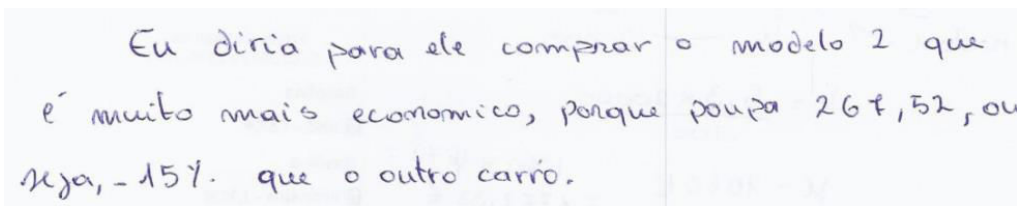 Eu diria para ele comprar o modelo 2 que
é muito mais economico, porque poupa 267,52, ou
seja, -15%. que o outro carro.